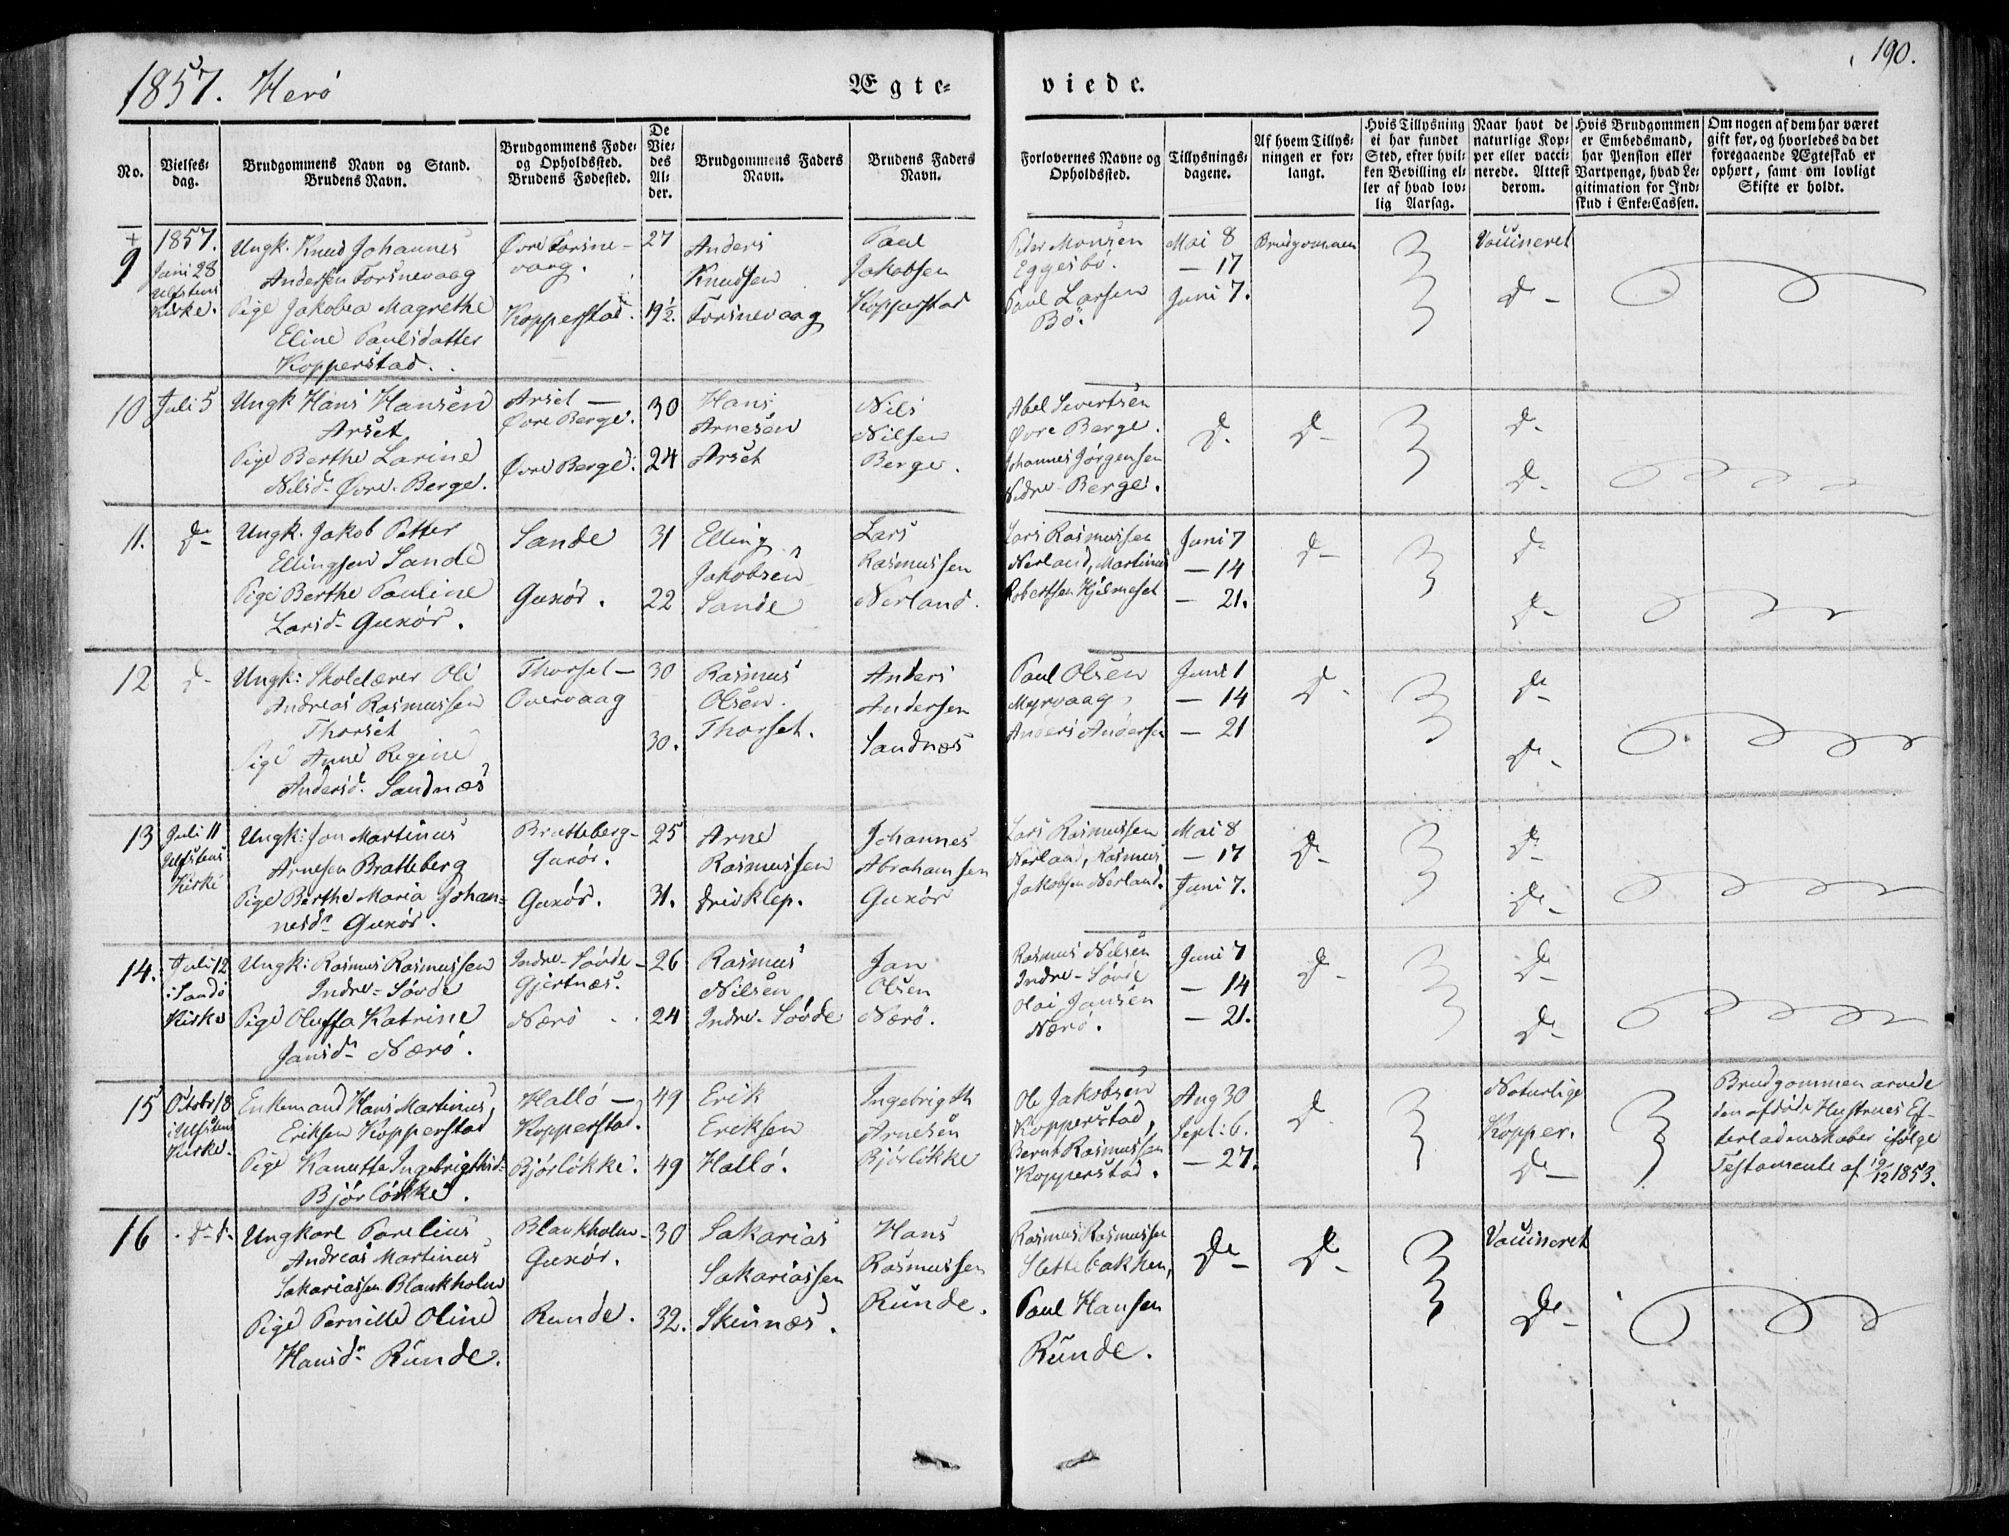 190.
1857. Herö
Ægte- viede.
No.
Vielses-
dag.
Brudgommens Navn og Stand.
Brudens Navn.
Brudgommens Føde-
og Opholdssted.
Brudens Fødested.
De
Vie-
des
Al-
der.
Brudgommens Faders
Navn.
Brudens Faders
Navn.
Forlovernes Navne og
Opholdssted.
Tillysnings-
dagene.
Af hvem Tillys-
ningen er for-
langt.
Hvis Tillysning
ei har fundet
Sted, efter hvil-
ken Bevilling el-
ler af hvad lov-
lig Aarsag.
Naar havt de
naturlige Kop-
per eller vacci-
nerede. Attest
derom.
Hvis Brudgommen
er Embedsmand,
har Pension eller
Vartpenge, hvad Le-
gitimation for Ind-
skud i Enke-Cassen.
Om nogen af dem har været
gift før, og hvorledes da det
foregaaende Ægteskab er
ophørt, samt om lovligt
Skifte er holdt.
+
9
1857.
Juni 28
Ulfstens
Kirke.
Ungk. Knud Johannes
Andersen Torsnevaag
Pige Jakobea Magrethe
Eline Paulsdatter
Kopperstad.
Øvre Torsne-
vaag.
Kopperstad.
27
19½.
Anders
Knudsen
Torsnevaag
Paul
Jakobsen
Kopperstad
Peder Monsen
Eggesbø.
Paul Larsen
Bö.
Mai 8
— 17
Juni 7.
Brudgommen
Vaccineret
D-
10
Juli 5
Ungk Hans Hansen
Arset
Pige Berthe Larine
Nilsd- Øvre-Berge.
Arset —
Øvre Berge.
Øvre Berge.
30
24
Hans
Arnesen
Arset
Nils
Nilsen
Berge.
Abel Sivertsen
Øvre Berge.
Johannes Jörgensen
Nedre-Berge.
D.
D-
D-
D-
11.
D-
Ungk. Jakob Petter
Ellingsen Sande
Pige Berthe Pauline
Larsd- Gurör.
Sande
Gurör.
31
22
Elling
Jakobsen
Sande
Lars
Rasmussen
Nerland.
Lars Rasmussen
Nerland, Martinus
Robertsen Hjelmeset
Juni 7
— 14
— 21.
D-
D-
D-
12
D-
Ungk: Skolelærer Ole
Andreas Rasmussen
Thorset
Pige Anne Regine
Andersd. Sandnæs
Thorset —
Overvaag
30
30.
Rasmus
Olsen
Thorset.
Anders
Andersen
Sandnæs
Paul Olsen
Myrvaag,
Anders Andersen
Juni 1
— 14
— 21
D-
D-
D-
13
Juli 11
Ulfstens
Kirke
Ungk: Jon Martinus
Arnesen Bratteberg
Pige Berthe Maria Johan-
nesd- Gurör.
Bratteberg-
Gurör.
Gurör.
25
31.
Arne
Rasmussen
Drivklep.
Johannes
Abrahamsen
Gurör
Lars Rasmussen
Nerland, Rasmus
Jakobsen Nerland.
Mai 8
— 17
Juni 7.
D-
D-
D-
14.
Juli 12
i Sandö
Kirke
Ungk: Rasmus Rasmussen
Indre-Sövde
Pige Oluffa Katrine
Jansd- Nærö.
Indre-Sövde-
Gjertnæs.
Nærö
26
24
Rasmus
Nilsen
Indre-Sövde
Jan
Olsen
Nærö.
Rasmus Nilsen
Indre-Sövde
Olai Jansen
Nærö.
Juni 7
— 14
— 21.
D-
D-
D-
15
Octobr 18
i Ulfstens
Kirke.
Enkemand Hans Martinus
Eriksen Kopperstad
Pige Kanutta Ingebrigthsd-
Bjørlökke.
Hallö —
Kopperstad.
Bjørlökke.
49
49
Erik
Eriksen
Hallö.
Ingebrigth
Arnesen
Bjørlökke
Ole Jakobsen
Kopperstad,
Bernt Rasmussen
Kopperstad.
Aug 30
Sept: 6.
— 27.
D-
Naturlige
Kopper.
D-
Brudgommen arvede
den afdöde Hustrues Ef-
terladenskaber ifölge
Testamente af 19/12 1853.
16
D- D-
Ungkarl Parelius
Andreas Martinus
Sakariassen Blankholm
Pige Pernille Oline
Hansd- Runde.
Blankholm-
Gurör.
Runde.
30
32.
Sakarias
Sakariassen
Skinnæs.
Hans
Rasmussen
Runde.
Rasmus Rasmussen
Slettebakken,
Paul Hansen
Runde.
D-
D-
Vaccineret
D-